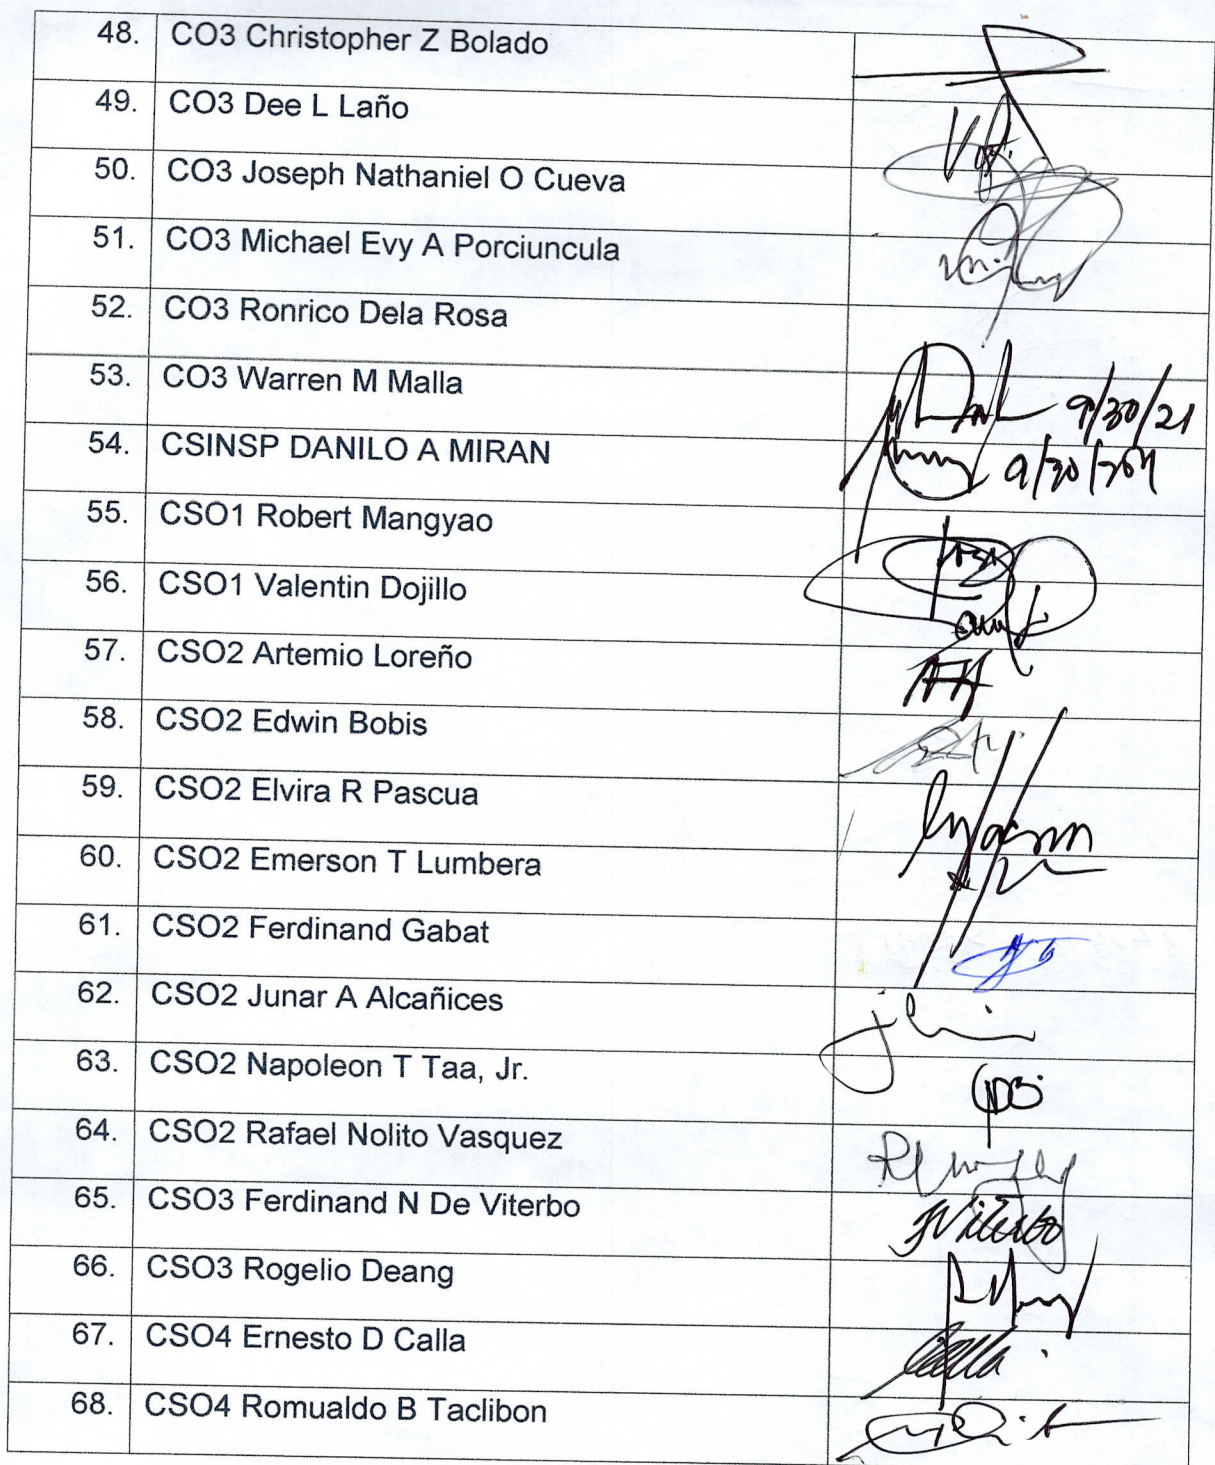 48. CO3 Christopher Z Bolado
49. CO3 Dee L Laño
50. CO3 Joseph Nathaniel O Cueva
51. CO3 Michael Evy A Porciuncula
52. CO3 Ronrico Dela Rosa
53. CO3 Warren M Malla 9/30/21
54. CSINSP DANILO A MIRAN
55. CSO1 Robert Mangyao
56. CSO1 Valentin Dojillo
57. CSO2 Artemio Loreño
58. CSO2 Edwin Bobis
59. CSO2 Elvira R Pascua
60. CSO2 Emerson T Lumbera
61. CSO2 Ferdinand Gabat
62. CSO2 Junar A Alcañices
63. CSO2 Napoleon T Taa, Jr.
64. CSO2 Rafael Nolito Vasquez
65. CSO3 Ferdinand N De Viterbo
66. CSO3 Rogelio Deang
67. CSO4 Ernesto D Calla
68. CSO4 Romualdo B Taclibon